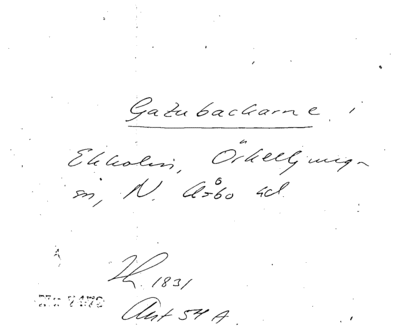 Gazubackarne i
Ekholm, Örkelljunga
sn, N. Åsbo hd.
1831
Akt 54 A